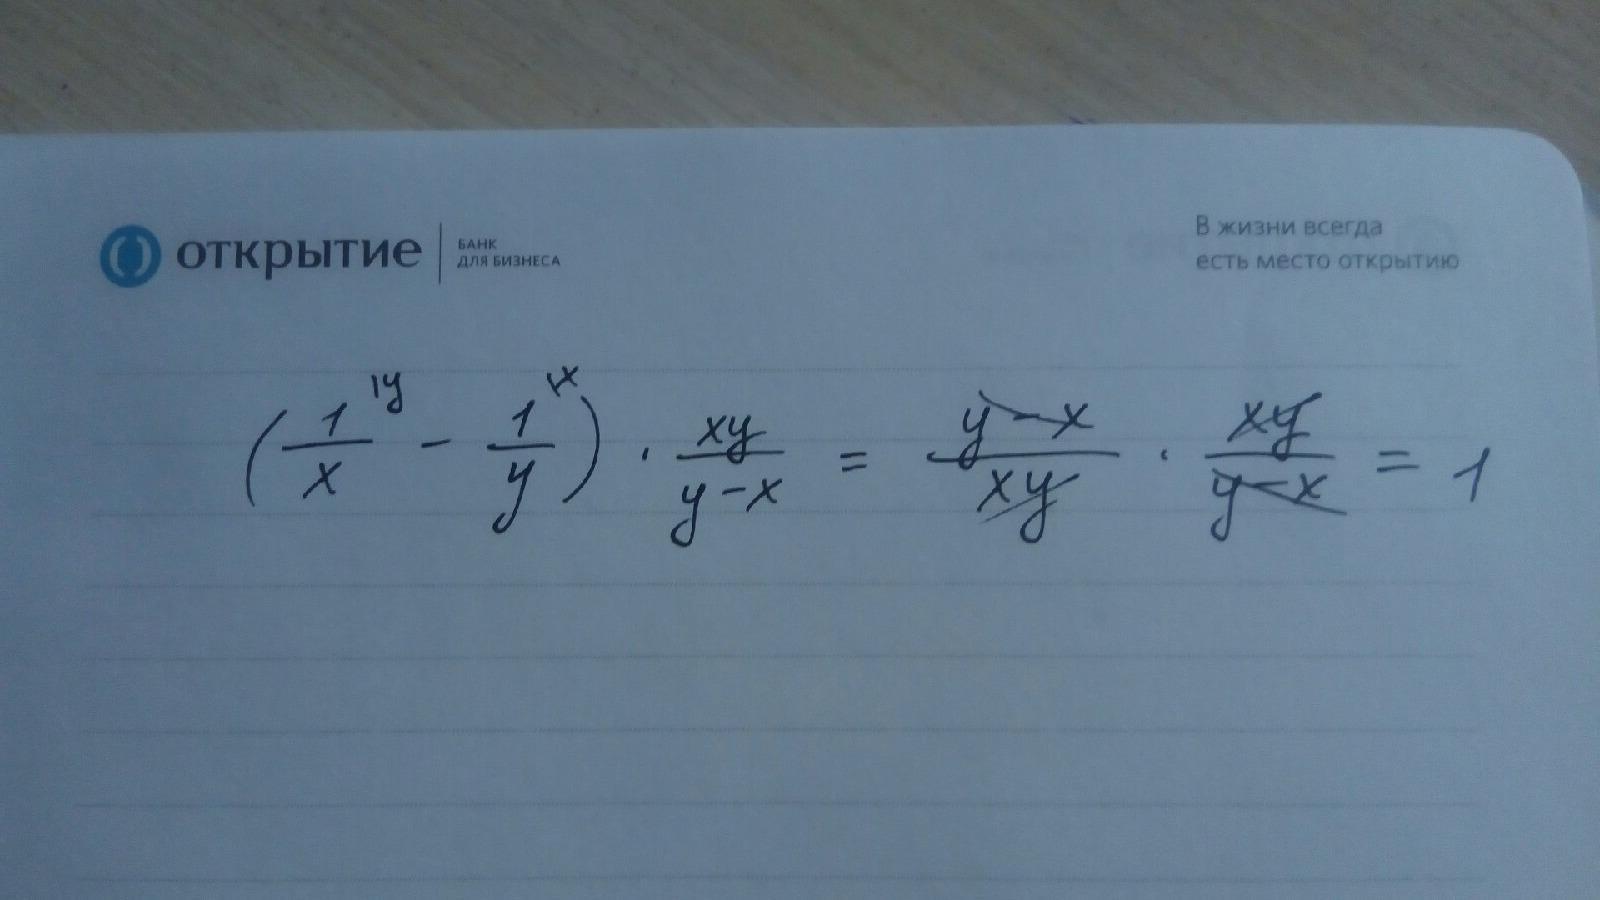 открытие
БАНК
ДЛЯ БИЗНЕСА
В жизни всегда
есть место открытию
(1/x |y - 1/y |x) · xy/(y-x) = (y-x)/(xy) · xy/(y-x) = 1